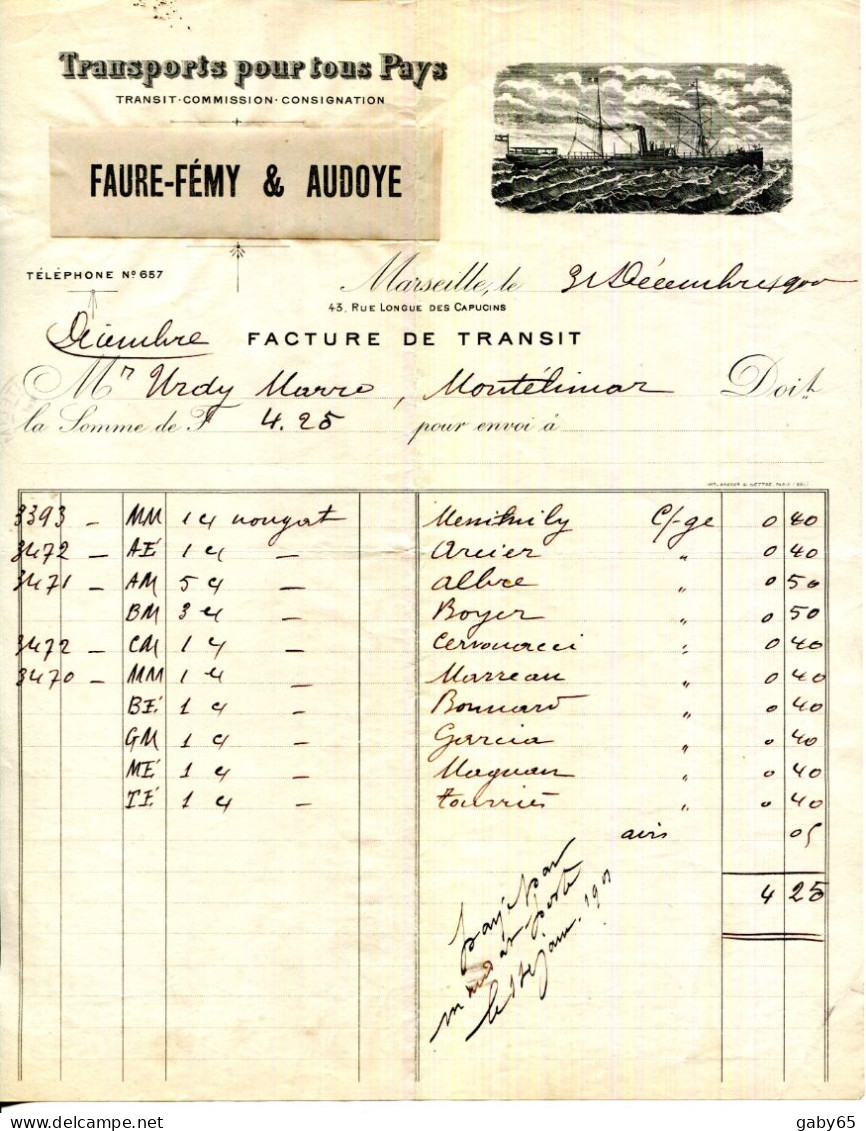 Transports pour tous Pays
TRANSIT·COMMISSION·CONSIGNATION
FAURE-FÉMY & AUDOYE
TÉLÉPHONE Nº 657
Marseille, le 31 Décembre 1900
43, RUE LONGUE DES CAPUCINS
Décembre FACTURE DE TRANSIT
Mr Urdy Marre, Montélimar Doit
la Somme de F 4.25 pour envoi à
3393 — MM 1 c/ nougat C/-ge 0 40
3472 — AÉ 1 c/ — Arcier " 0 40
3471 — AM 5 c/ — Albre " 0 50
BM 3 c/ — Boyer " 0 50
3472 — CM 1 c/ — " 0 40
3470 — MM 1 c/ — Marreau " 0 40
BÉ 1 c/ — Bonnard " 0 40
GM 1 c/ — Garcia " 0 40
MÉ 1 c/ — Magnan " 0 40
TÉ 1 c/ — " 0 40
avis 05
4 25
payé par
poste
le janv. 190
delcampe.net
gaby65